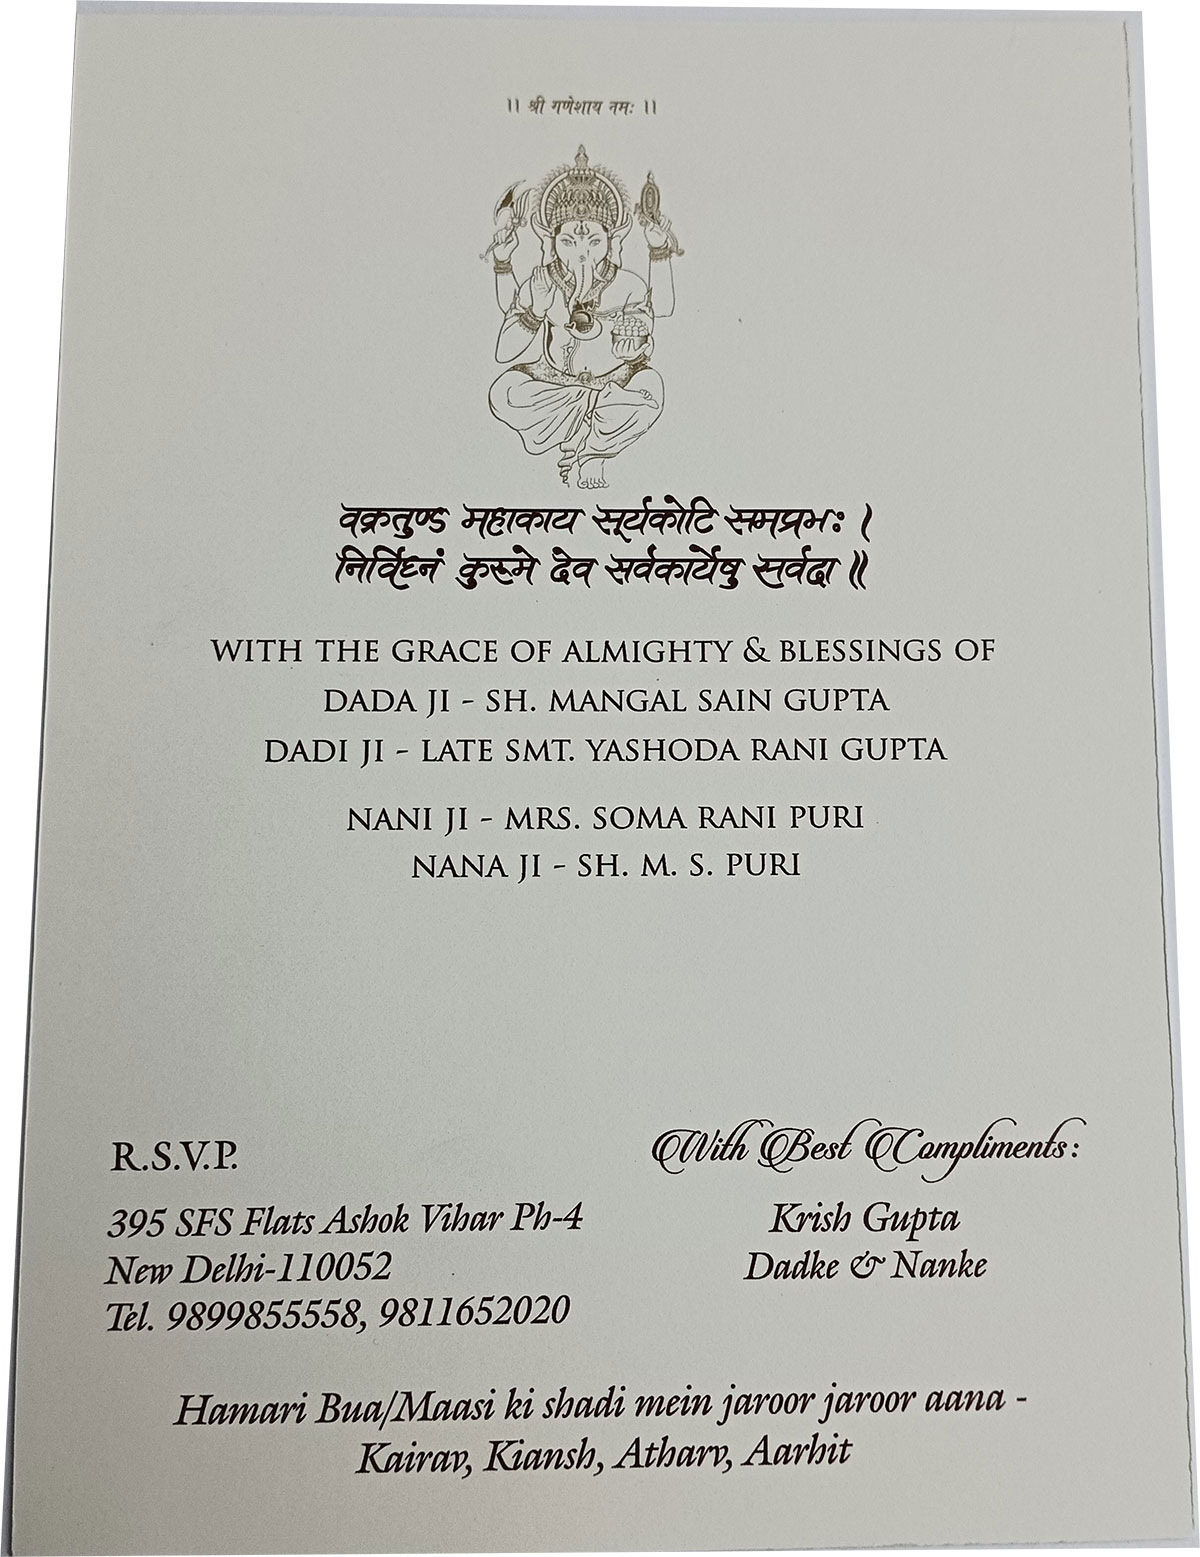 ।। श्री गणेशाय नमः ।।
वक्रतुण्ड महाकाय सूर्यकोटि समप्रभः।
निर्विघ्नं कुरूमे देव सर्वकार्येषु सर्वदा॥
WITH THE GRACE OF ALMIGHTY & BLESSINGS OF
DADA JI - SH. MANGAL SAIN GUPTA
DADI JI - LATE SMT. YASHODA RANI GUPTA
NANI JI - MRS. SOMA RANI PURI
NANA JI - SH. M. S. PURI
R.S.V.P.
395 SFS Flats Ashok Vihar Ph-4
New Delhi-110052
Tel. 9899855558, 9811652020
With Best Compliments:
Krish Gupta
Dadke & Nanke
Hamari Bua/Maasi ki shadi mein jaroor jaroor aana -
Kairav, Kiansh, Atharv, Aarhit